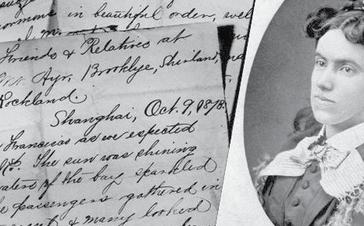 in beautiful order, we
Friends & Relatives at
Ayr, Brooklye, Shirland,
Rockland
Shanghai, Oct. 9, 1878.
Francisco as we expected
The sun was shining
waters of the bay sparkled
passengers gathered in
& many looked